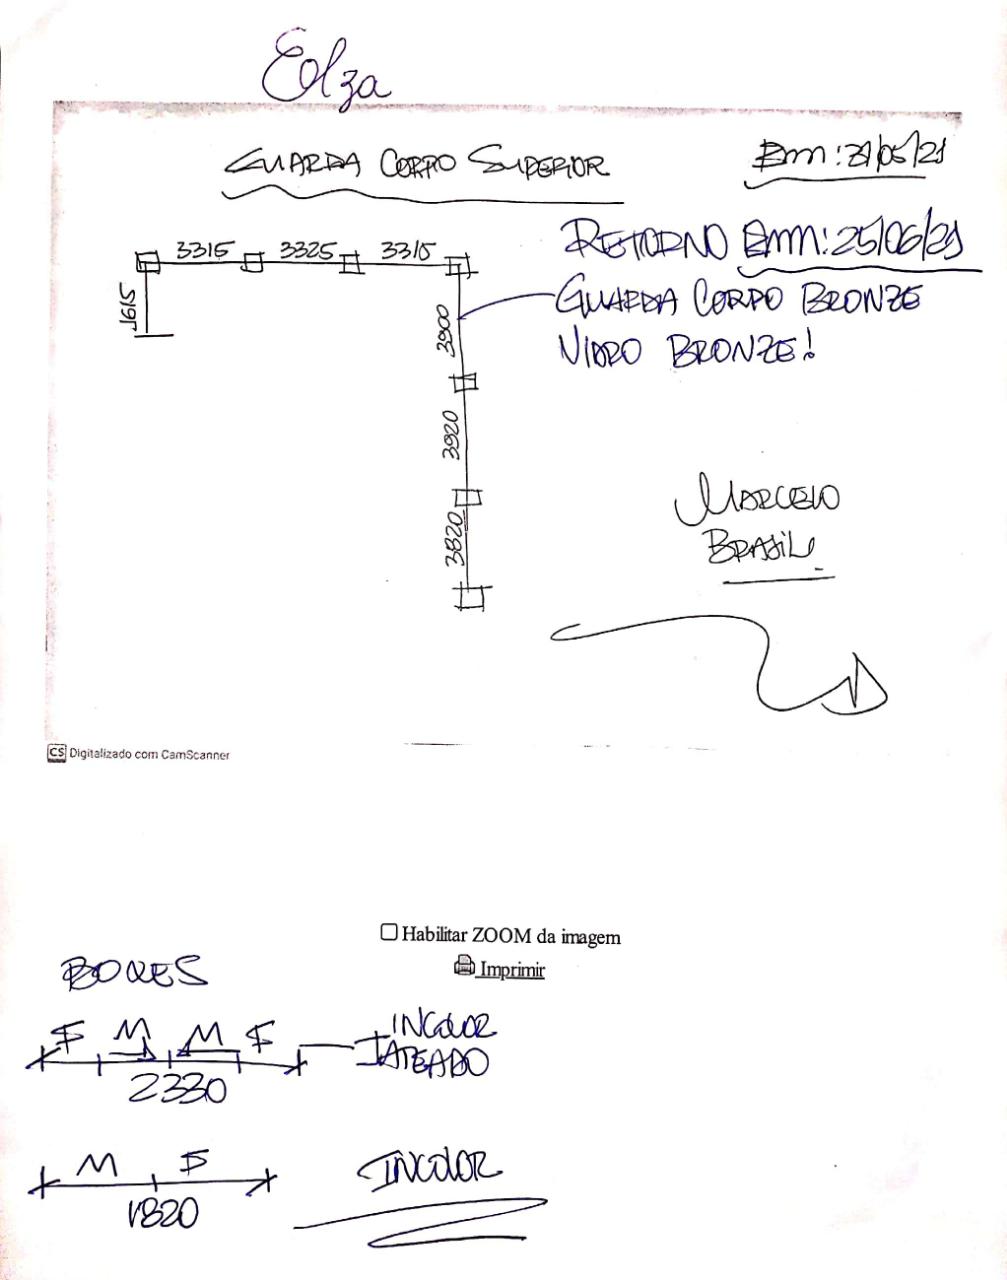 Elza
GUARDA CORPO SUPERIOR
Em: 21/05/21
RETORNO Em: 25/06/21
GUARDA CORPO BRONZE
VIDRO BRONZE!
3315 3325 3315
1615
3900
3920
3820
MARCELO
BRASIL
CS Digitalizado com CamScanner
Habilitar ZOOM da imagem
Imprimir
BOXES
F M M F
INCOLOR
JATEADO
2330
M F
INCOLOR
1820